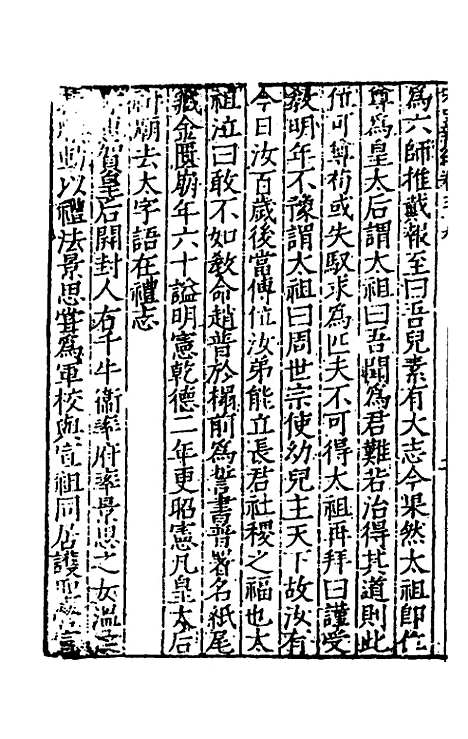 為六師推戴報至曰吾兒素有大志今果然太祖即位
尊為皇太后謂太祖曰吾聞為君難若治得其道則此
位可尊茍或失馭求為匹夫不可得太祖再拜曰謹受
教明年不豫謂太祖曰周世宗使幼兒主天下故汝有
今日汝百歲後當傳位汝弟能立長君社稷之福也太
祖泣曰敢不如教命趙普於榻前為誓書普署名紙尾
藏金匱崩年六十謚明憲乾德二年更昭憲凡皇太后
祔廟去太字語在禮志
惠賀皇后開封人右千牛衞率府率景思之女溫
動以禮法景思嘗為軍校與宣祖同居護聖營